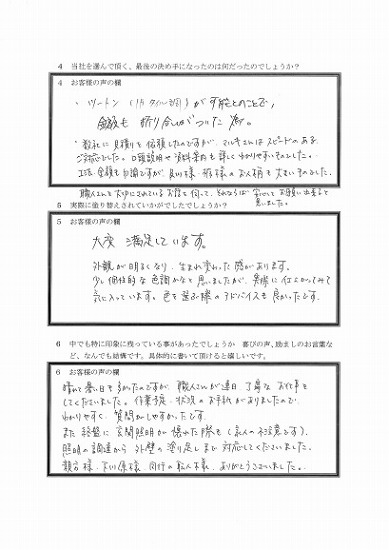 4 当社を選んで頂く、最後の決め手になったのは何だったのでしょうか?
4 お客様の声の欄
・ツートン(1Fタイル調)が可能とのことで、
金額も折り合いがついた為。
・数社に見積りを依頼したのですが、マルキさんはスピードのある
ご対応でした。口頭説明や資料案内も詳しくわかりやすいものでした。
工法、金額も
職人さんを大切にされているお話を伺って、それならば安心してお願い出来ると
思いました。
5 実際に塗り替えされていかがでしたでしょうか?
5 お客様の声の欄
大変 満足しています。
外観が明るくなり、生まれ変わった感があります。
少し個性的な色調かなと思いましたが、実際に仕上がってみて
気に入っています。色を選ぶ際のアドバイスも良かったです。
6 中でも特に印象に残っている事がありましたでしょうか 喜びの声、励ましのお言葉な
ど、なんでも結構です。具体的に書いて頂けると嬉しいです。
6 お客様の声の欄
晴れて暑い日も多かったのですが、職人さんが連日、丁寧なお仕事を
してくださいました。作業予定・状況のお手紙がありましたので
わかりやすく、質問がしやすかったです。
また終盤に玄関照明が壊れた際も(家人の不注意です)、
照明の調達から外壁の塗り足しまで対応してくださいました。
様、様、同行の職人様、ありがとうございました。